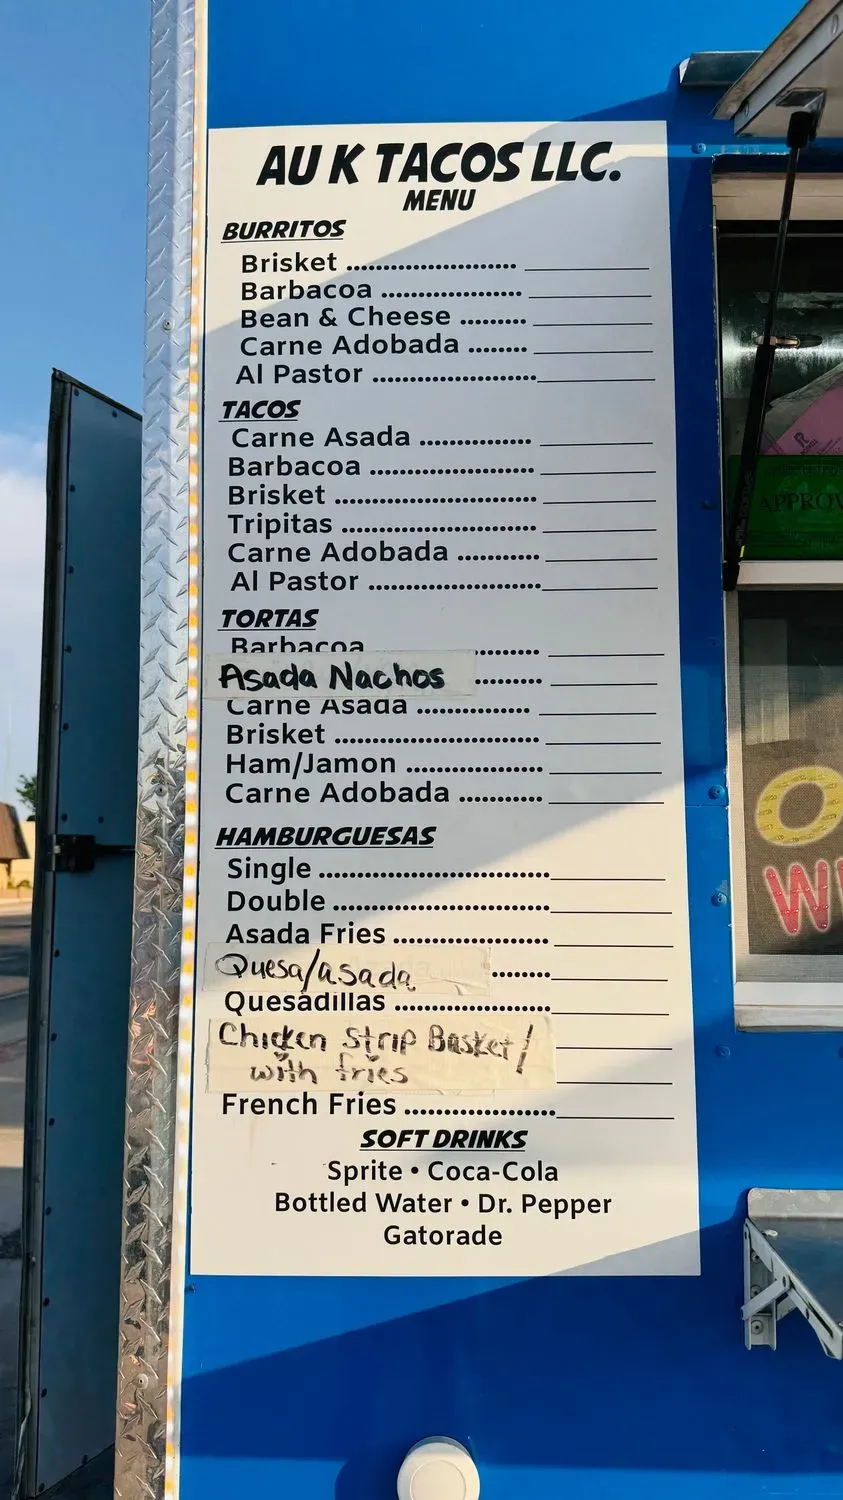 AU K TACOS LLC.
MENU
BURRITOS
Brisket
Barbacoa
Bean & Cheese
Carne Adobada
Al Pastor
TACOS
Carne Asada
Barbacoa
Brisket
Tripitas
Carne Adobada
Al Pastor
TORTAS
Barbacoa
Asada Nachos
Carne Asada
Brisket
Ham/Jamon
Carne Adobada
HAMBURGUESAS
Single
Double
Asada Fries
Quesa/asada
Quesadillas
Chicken Strip Basket/
with fries
French Fries
SOFT DRINKS
Sprite • Coca-Cola
Bottled Water • Dr. Pepper
Gatorade
APPROV
O
W